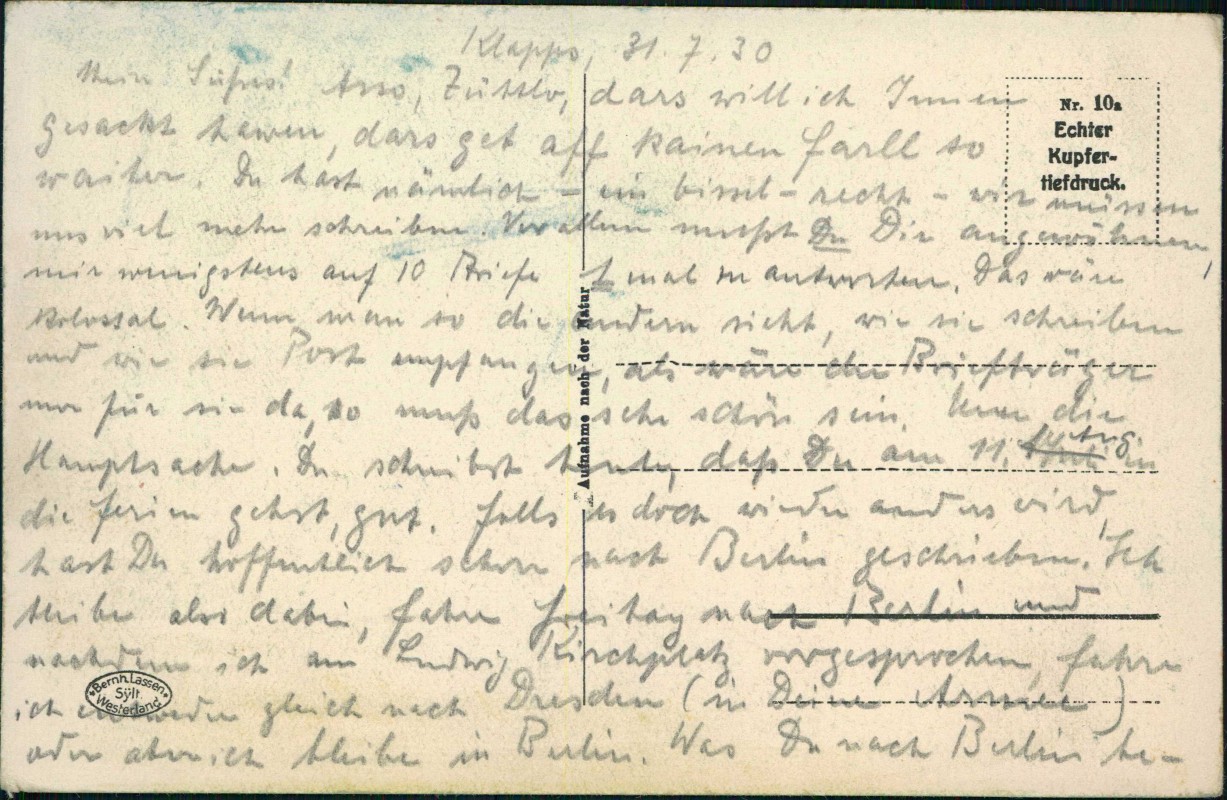 Klappo, 31.7.30
Mein Süßes! Asso, Züttlo, dars will ich Innen
gesackt hawen, dars get aff kainen farll so
waiter. Du hast nämlich – ein bissel – recht – wir müssen
uns viel mehr schreiben. Vor allem mußt Du Dir angewöhnen,
mir wenigstens auf 10 Briefe 1 mal zu antworten. Das wäre
kolossal. Wenn man so die andern sieht, wie sie schreiben
und wie sie Post empfangen, als wäre der Briefträger
nur für sie da, so muß das sehr schön sein. Nun die
Hauptsache. Du schreibst heute, daß Du am 11. Aug. in
die Ferien gehst, gut. Falls es doch wieder anders wird,
hast Du hoffentlich schon nach Berlin geschrieben. Ich
bleibe also dabei, fahre Freitag nach Berlin und
nachdem ich am Ludwig Kirchplatz vorgesprochen, fahre
ich entweder gleich nach Dresden (in Deine Armee)
oder aber ich bleibe in Berlin. Was Du nach Berlin be-
Nr. 10a
Echter
Kupfer-
tiefdruck.
Aufnahme nach der Natur
Bernh. Lassen
Sylt
Westerland